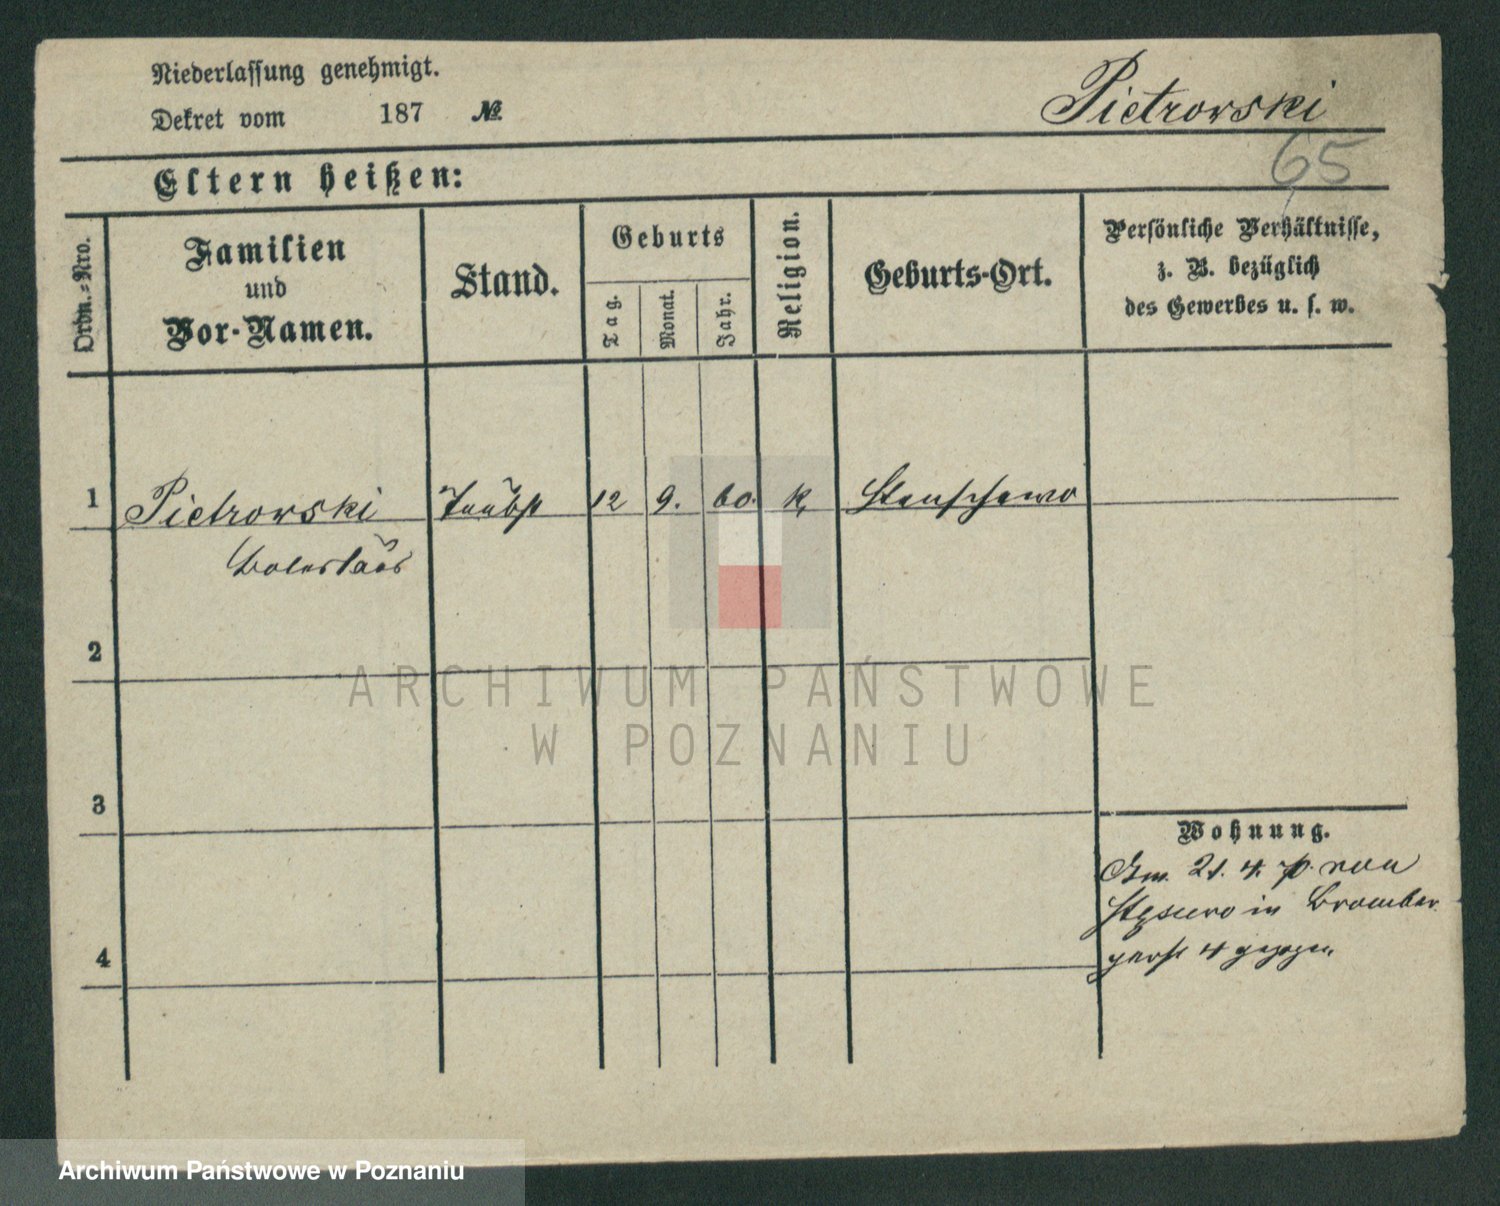 Niederlassung genehmigt.
Dekret vom 187 №
Pietrowski
65
Eltern heißen:
Ordn.-Nro.
Familien
und
Vor-Namen.
Stand.
Geburts
Tag.
Monat.
Jahr.
Religion.
Geburts-Ort.
Persönliche Verhältnisse,
z. B. bezüglich
des Gewerbes u. s. w.
1 Pietrowski 12 9. 60. k.
Boleslaus
2
3
4
Wohnung.
21. 4. von
in Bromber
4 gezogen
ARCHIWUM PAŃSTWOWE
W POZNANIU
Archiwum Państwowe w Poznaniu